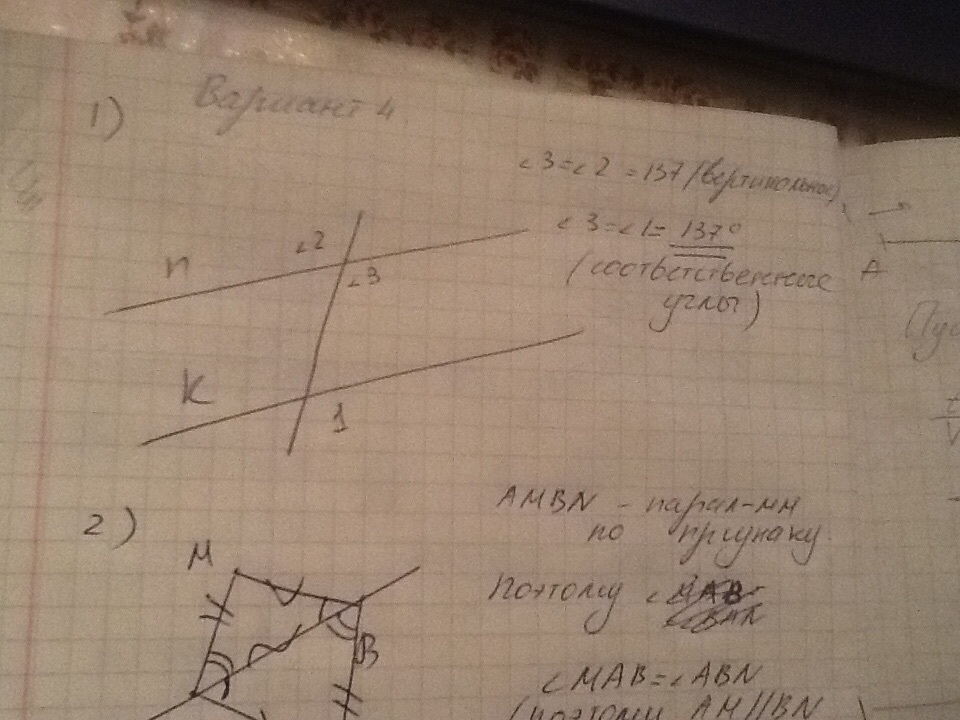 Вариант 4
1)
∠3=∠2 =137 (вертикальные)
∠3=∠1= 137°
(соответственные
углы)
∠2
∠3
n
K
1
A
Пус
2)
AMBN - парал-мм
по признаку.
Поэтому ∠
∠MAB=∠ABN
(поэтому AM||BN
M
B